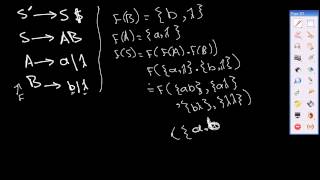 S' → S $
S → AB
A → a|λ
B → b|λ
F
F(B) = {b, λ}
F(A) = {a, λ}
F(S) = F(F(A) · F(B))
F({a, λ} · {b, λ})
= F({ab}, {aλ}
, {bλ}, {λλ})
({a, b